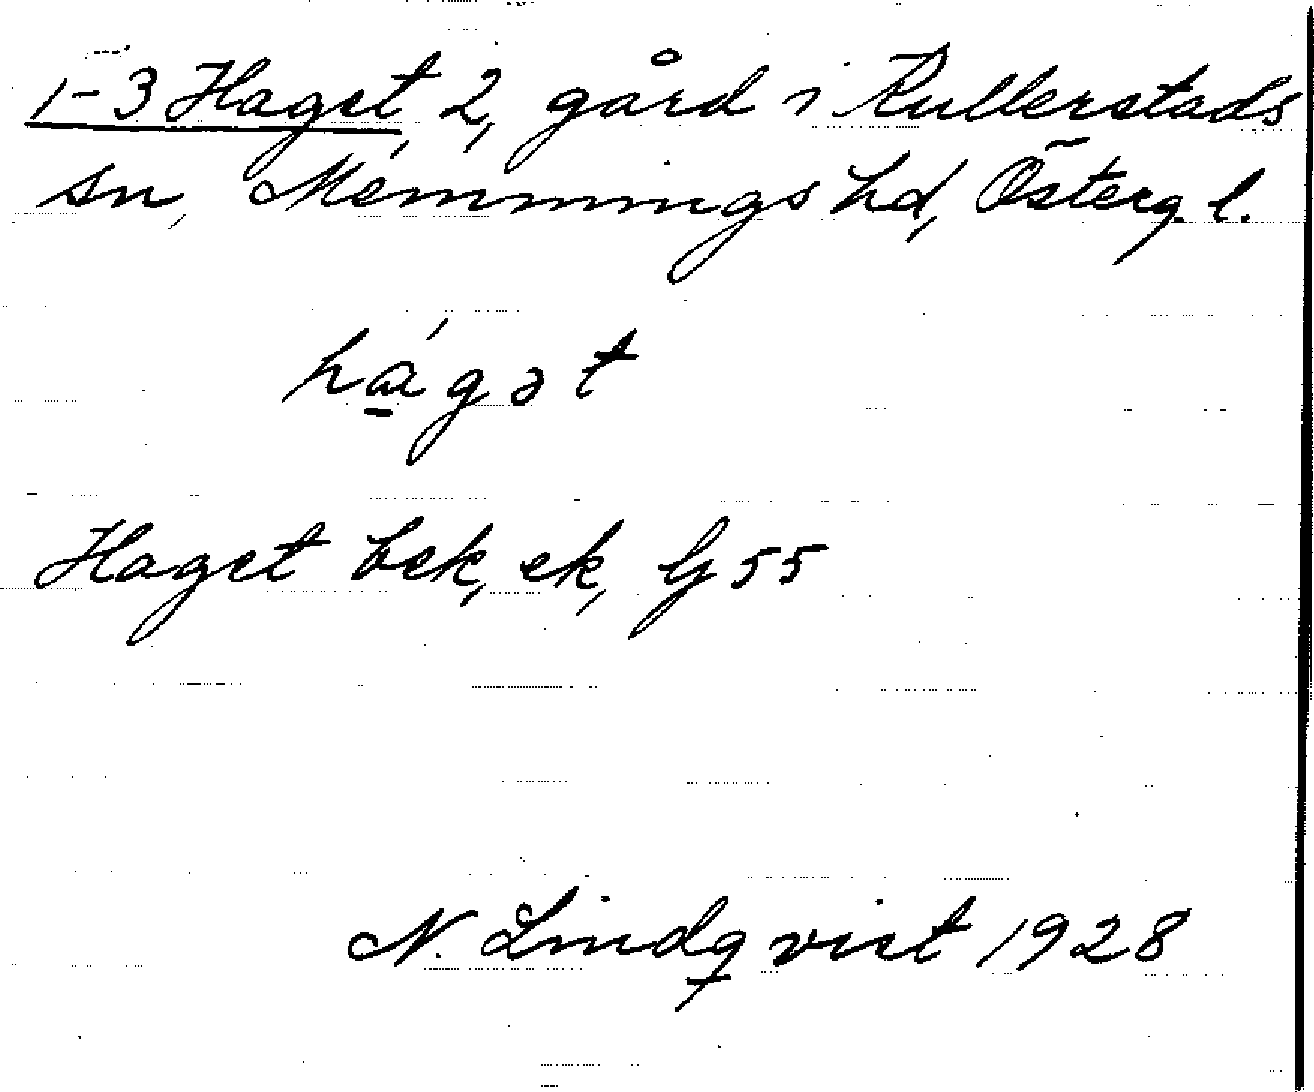 1-3 Haget, 2, gård i Kullerstads
sn, Memmings hd, Österg. l.
hágət
Haget bek, ek, G 55
N. Lindqvist 1928